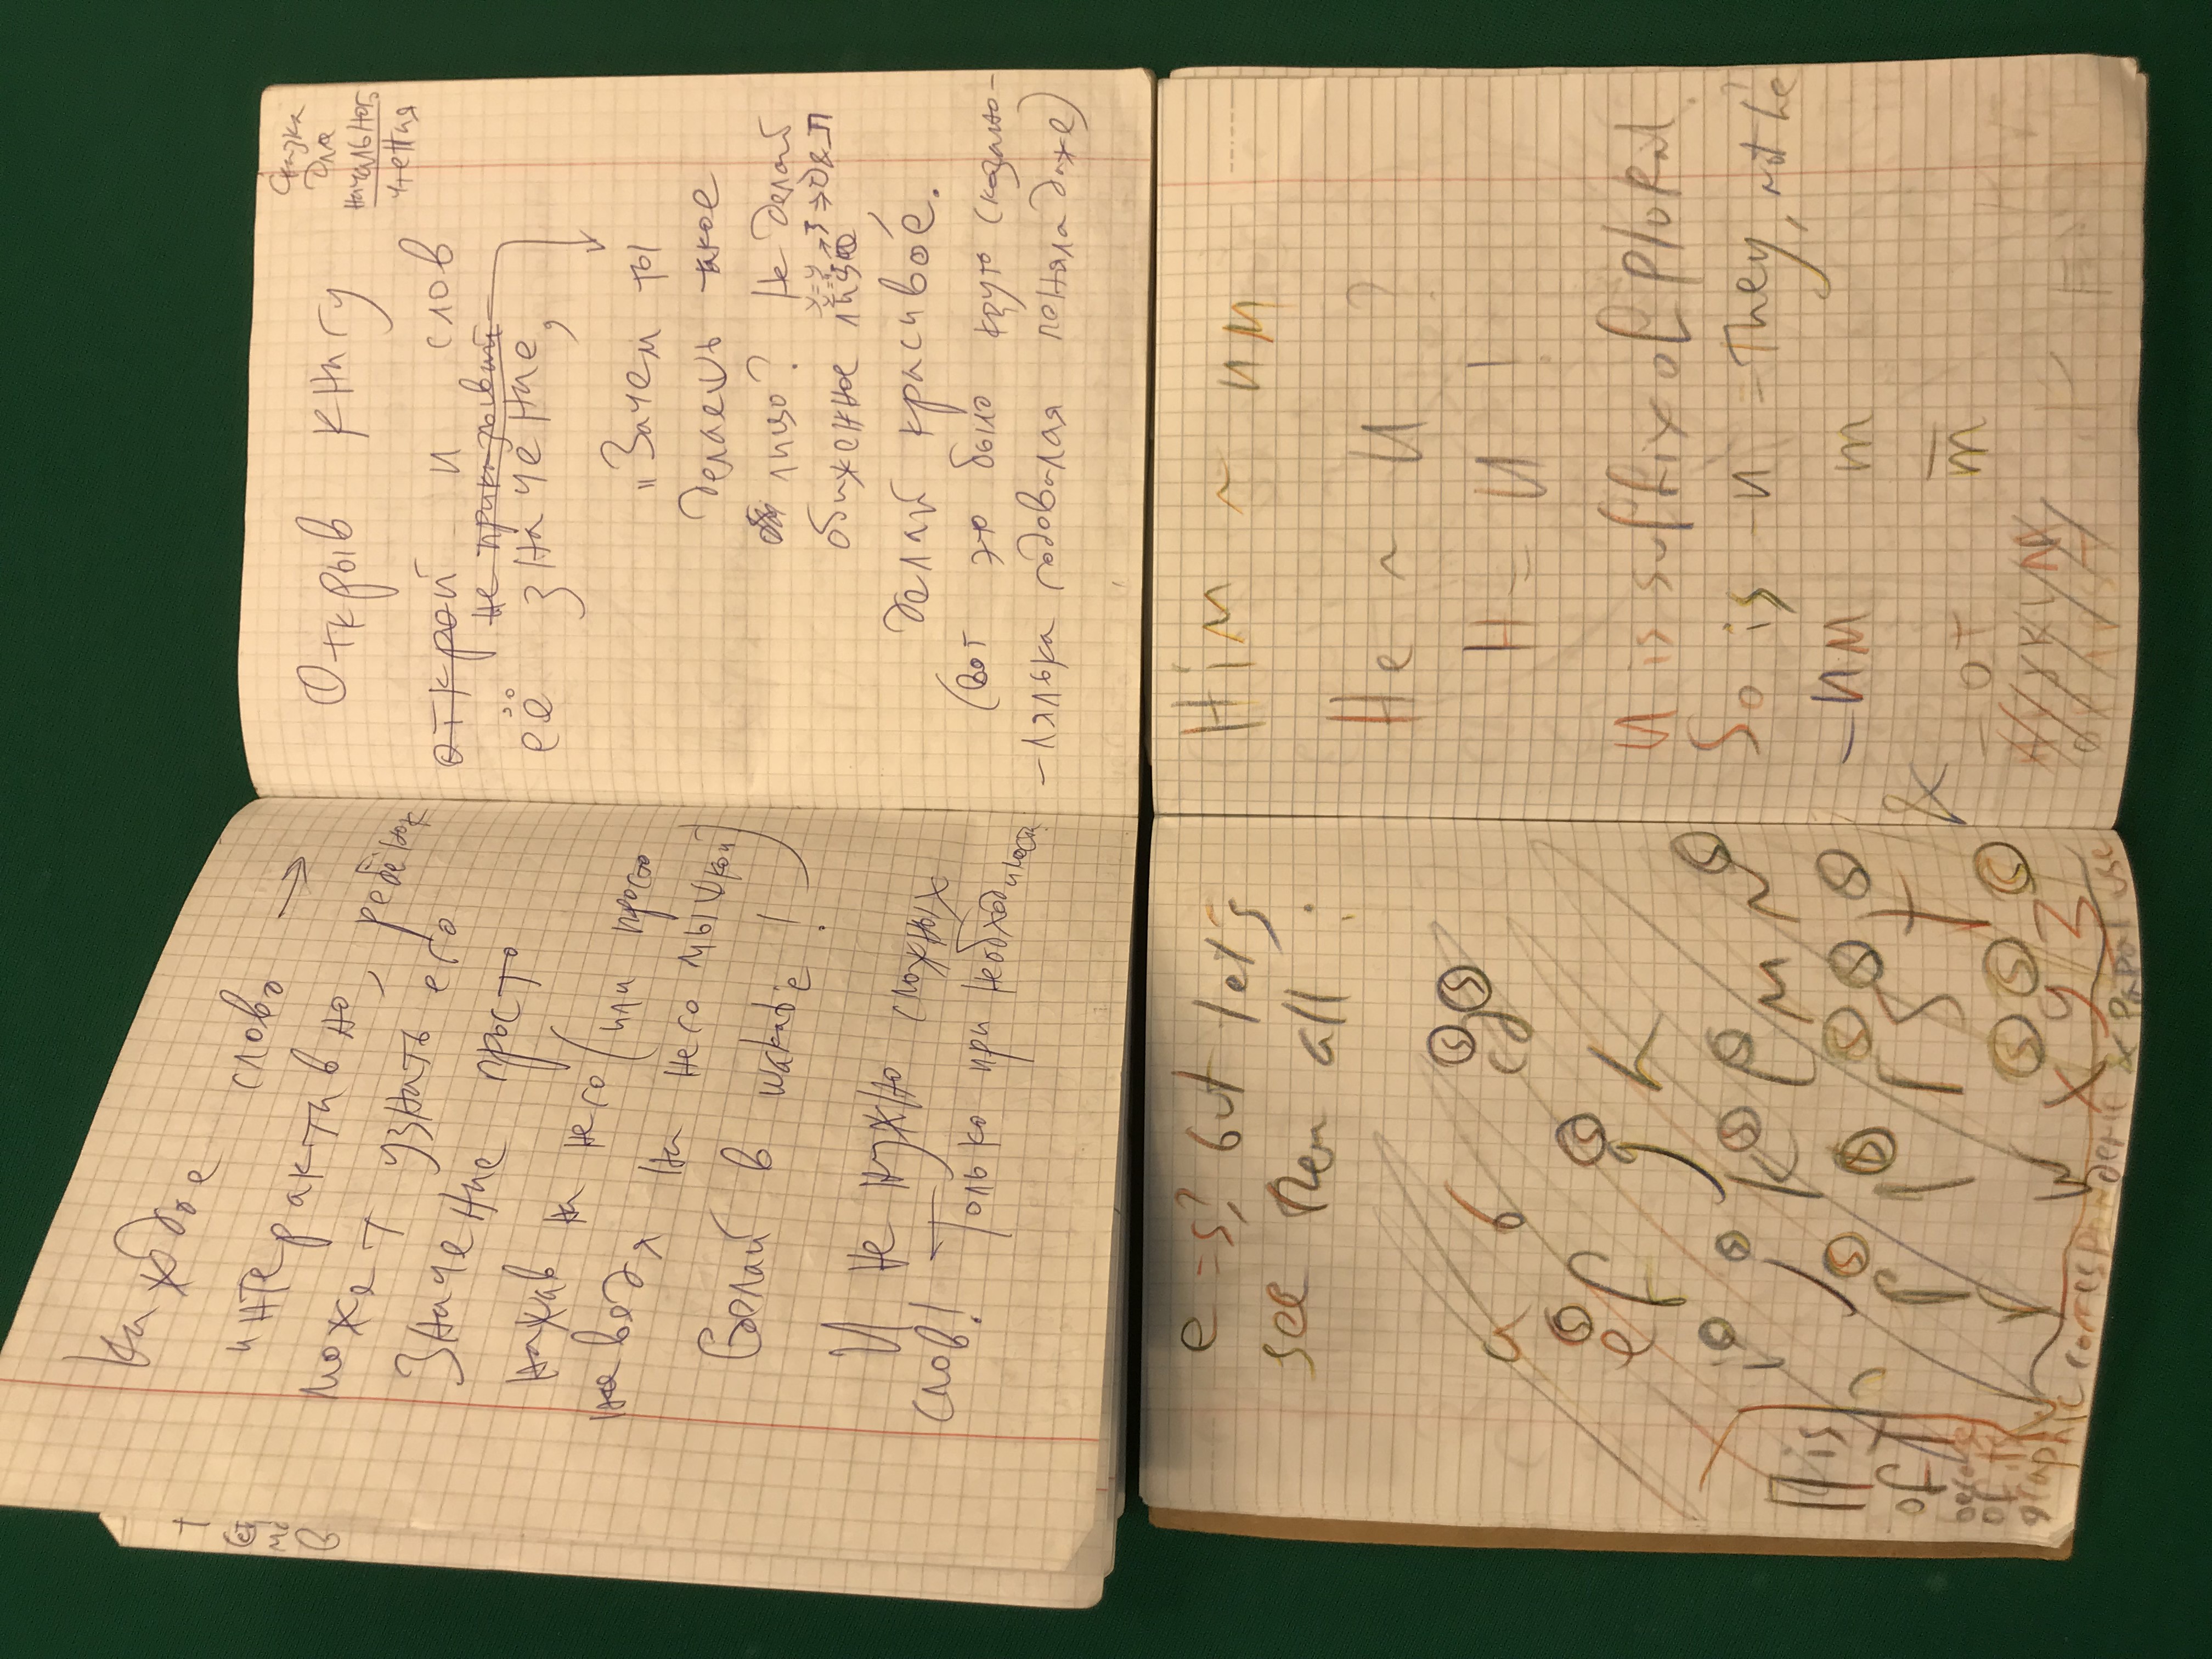 Каждое
слово →
интерактивно, ребёнок
может узнать его
значение просто
нажав на него (или просто
наведя на него мышкой)
Сделай в wakabe!
И не нужно сложных
слов! Только при необходимости
Сказка
для
начального
чтения
Открыв книгу
открой и слов
не приказывай
её значение,
"Зачем ты
делаешь такое
лицо? Не делай
обиженное лицо,
делай красивое.
(Вот это было круто сказано-
-лялька годовалая поняла даже)
e = s?, but let's
see them all :
a b c d
s s
s s
e f g h
s s s s s
i j k l m n
s s s s s
p q r s t &
s s s
v w x y z
П is
of T
because
of its
graphic correspondence & papal use
Him ~ им
He ~ И ?
H = И !
И is suffix of plural
So is -и = They, not he
-им m
- от m̅